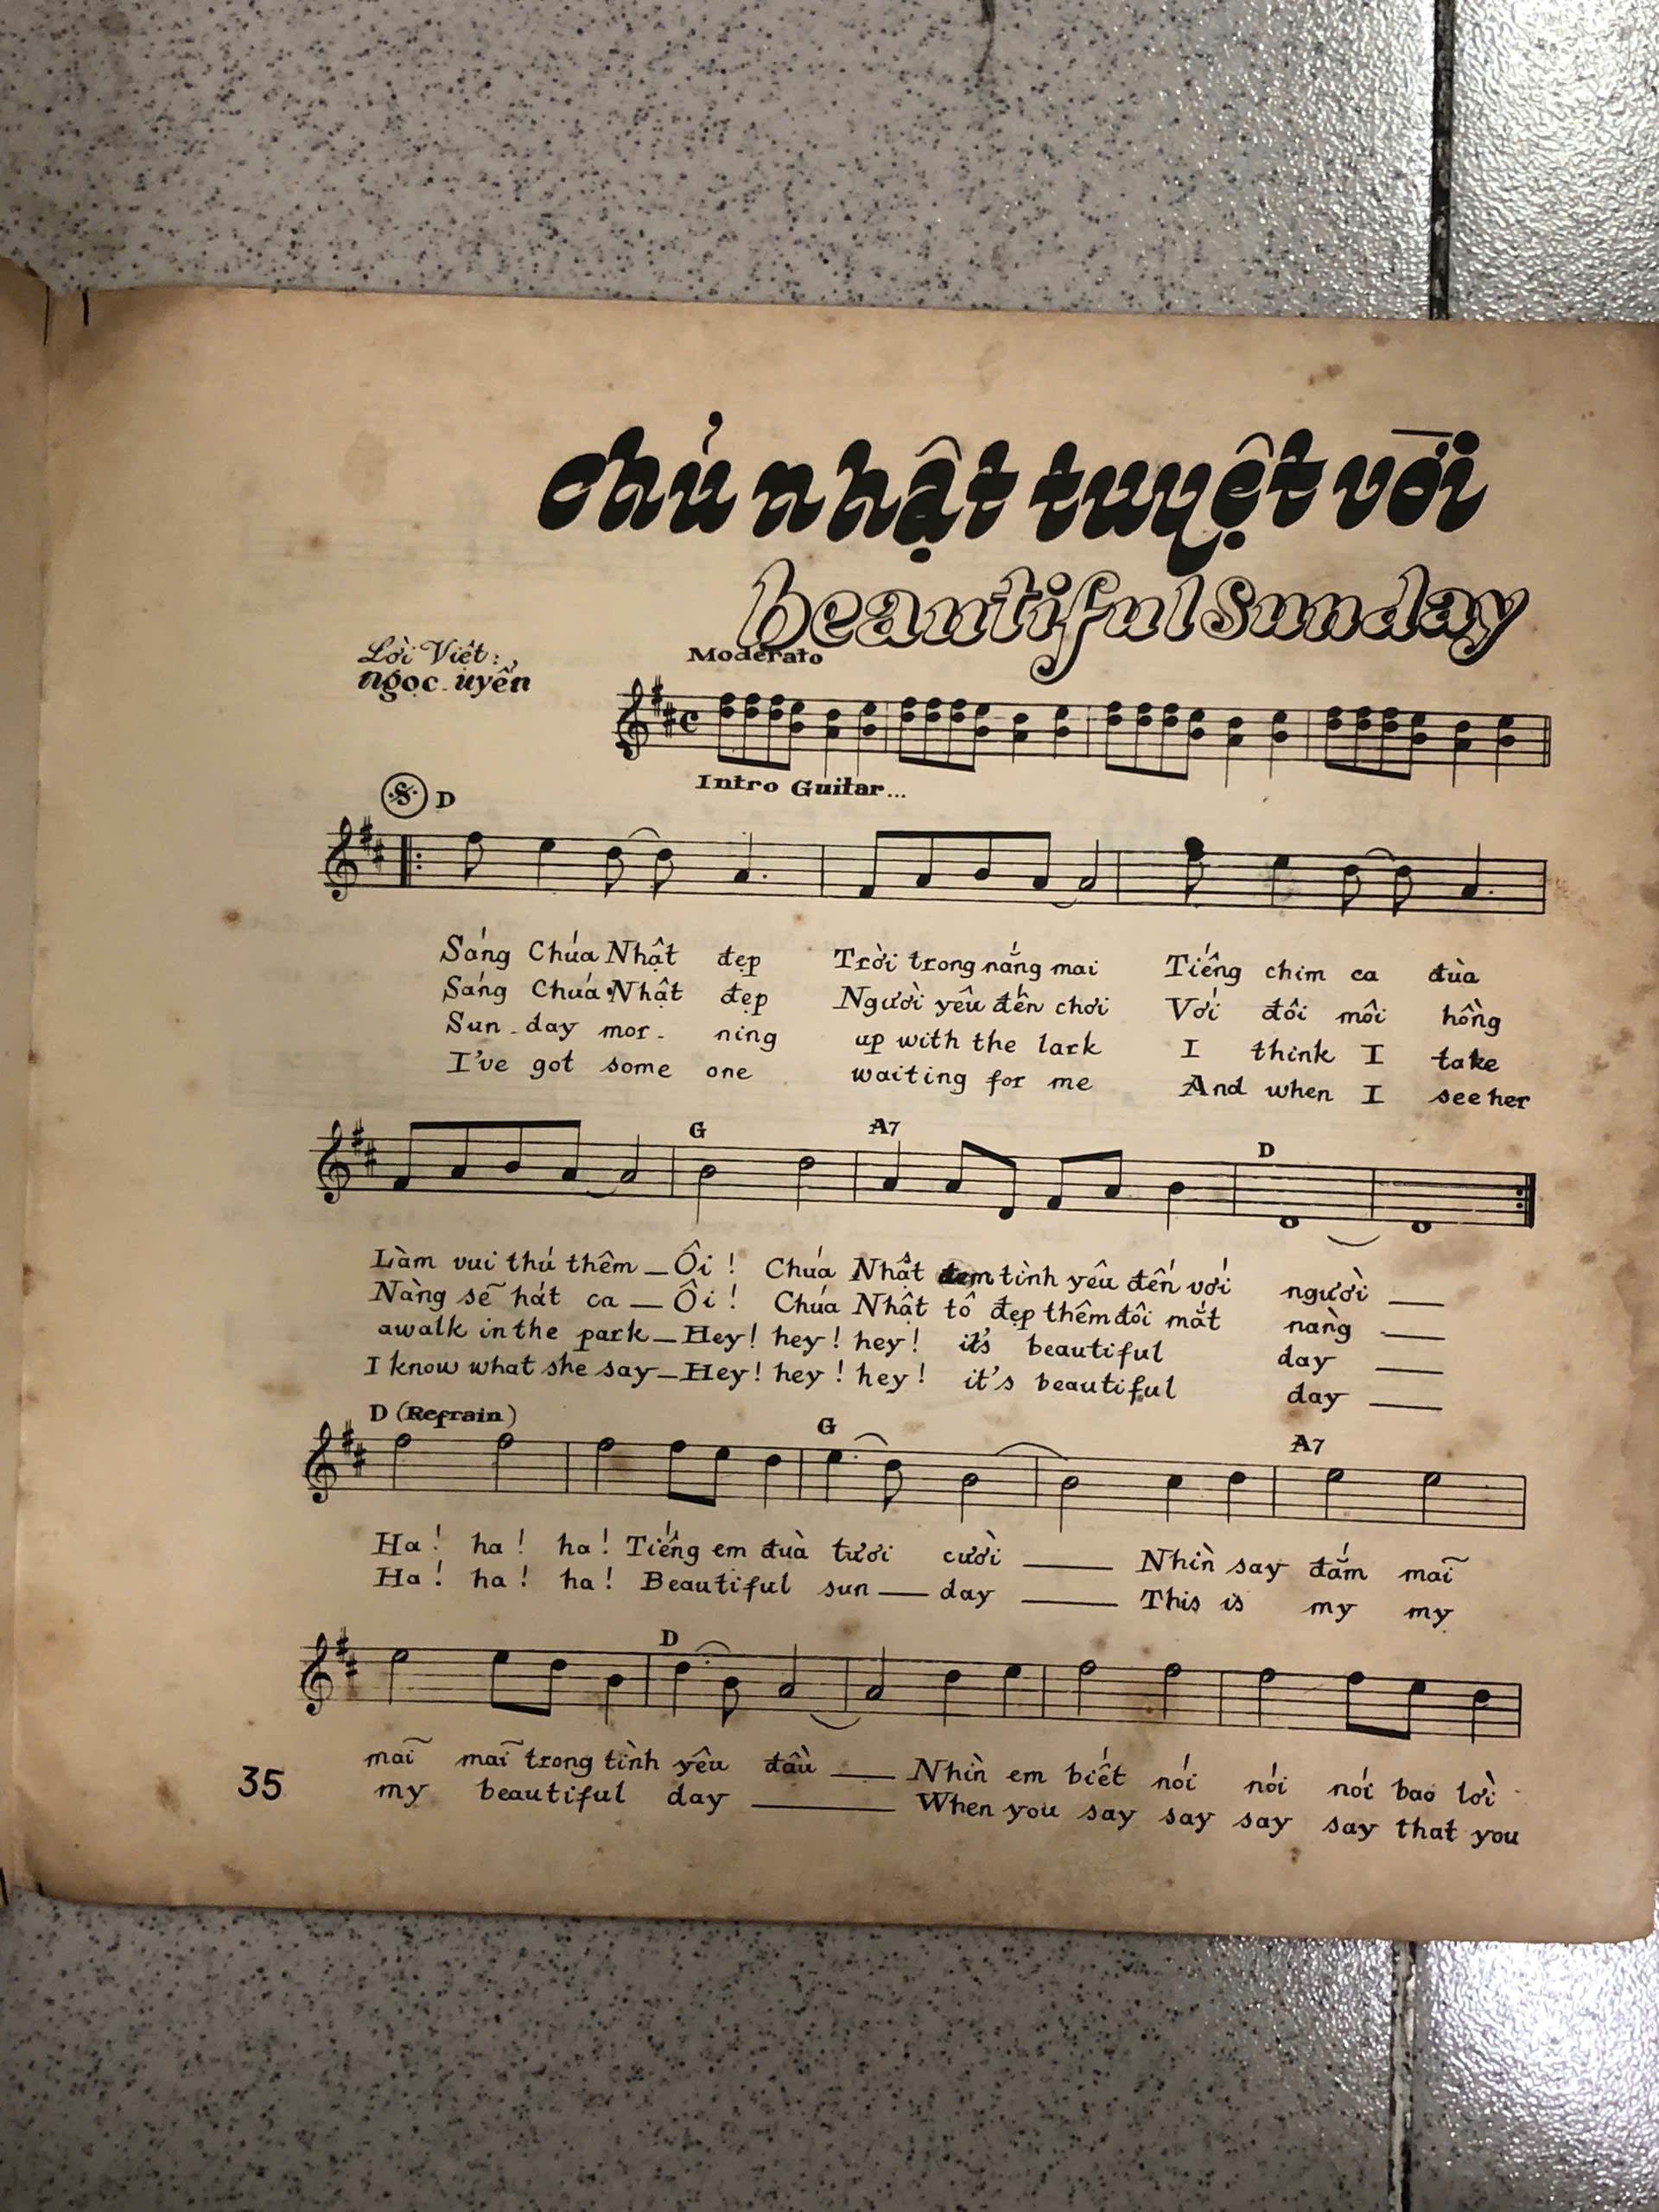 chủ nhật tuyệt vời
beautiful sunday
Lời Việt:
ngọc uyển
Moderato
Intro Guitar...
D
Sáng Chúa Nhật đẹp Trời trong nắng mai Tiếng chim ca đùa
Sáng Chúa Nhật đẹp Người yêu đến chơi Với đôi môi hồng
Sun - day mor - ning up with the lark I think I take
I've got some one waiting for me And when I see her
G A7 D
Làm vui thú thêm — Ôi ! Chúa Nhật đem tình yêu đến với người —
Nàng sẽ hát ca — Ôi ! Chúa Nhật tô đẹp thêm đôi mắt nàng —
awalk in the park — Hey! hey! hey! it's beautiful day —
I know what she say — Hey! hey! hey! it's beautiful day —
D (Refrain) G A7
Ha! ha! ha! Tiếng em đùa tươi cười — Nhìn say đắm mãi
Ha! ha! ha! Beautiful sun — day — This is my my
D
mãi mãi trong tình yêu đầu — Nhìn em biết nói nói nói bao lời
my beautiful day — When you say say say say that you
35